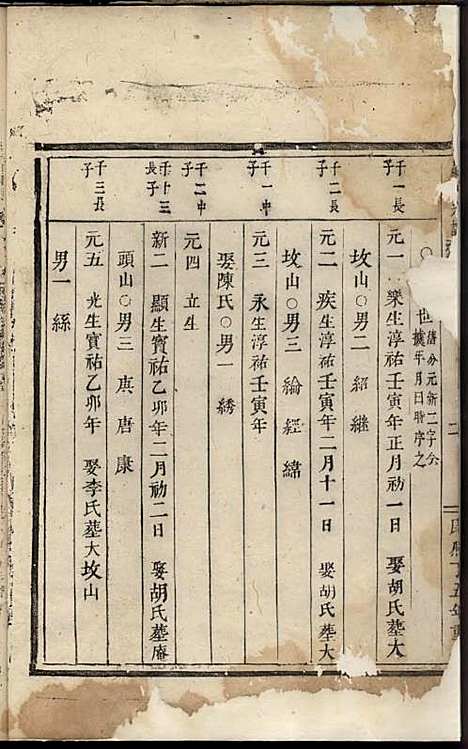 世 舊分元新二字今
據年月日時序之
千一長子
元一 榮生淳祐壬寅年正月初一日 娶胡氏墓大
坟山○男二 紹 繼
千二長子
元二 疾生淳祐壬寅年二月十一日 娶胡氏墓大
坟山○男三 綸 經 緯
千一中子
元三 永生淳祐壬寅年
娶陳氏○男一 綉
千二中子
元四 立生
千十三長子
新二 顯生寳祐乙卯年二月初二日 娶胡氏墓庵
頭山○男三 庚 唐 康
千三長子
元五 光生寳祐乙卯年 娶李氏墓大坟山
男一 綵